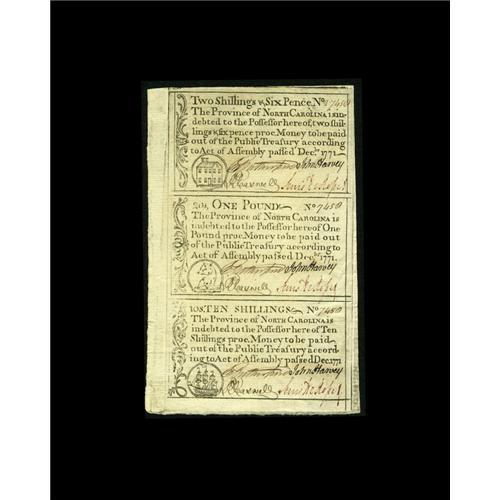 Two Shillings & Six Pence. No 7450
The Province of NORTH CAROLINA is in-
debted to the Possessor here of, two shil-
lings & six pence proc. Money to be paid
out of the Public Treasury according
to Act of Assembly passed Decr. 1771.
John Harvey
20s. ONE POUND No 7450
The Province of NORTH CAROLINA is
indebted to the Possessor here of One
Pound proc. Money to be paid out
of the Public Treasury according to
Act of Assembly passed Decr. 1771.
John Harvey
10S. TEN SHILLINGS No 7450
The Province of NORTH CAROLINA is
indebted to the Possessor here of Ten
Shillings proc. Money to be paid
out of the Public Treasury accord-
ing to Act of Assembly passed Dec. 1771
John Harvey